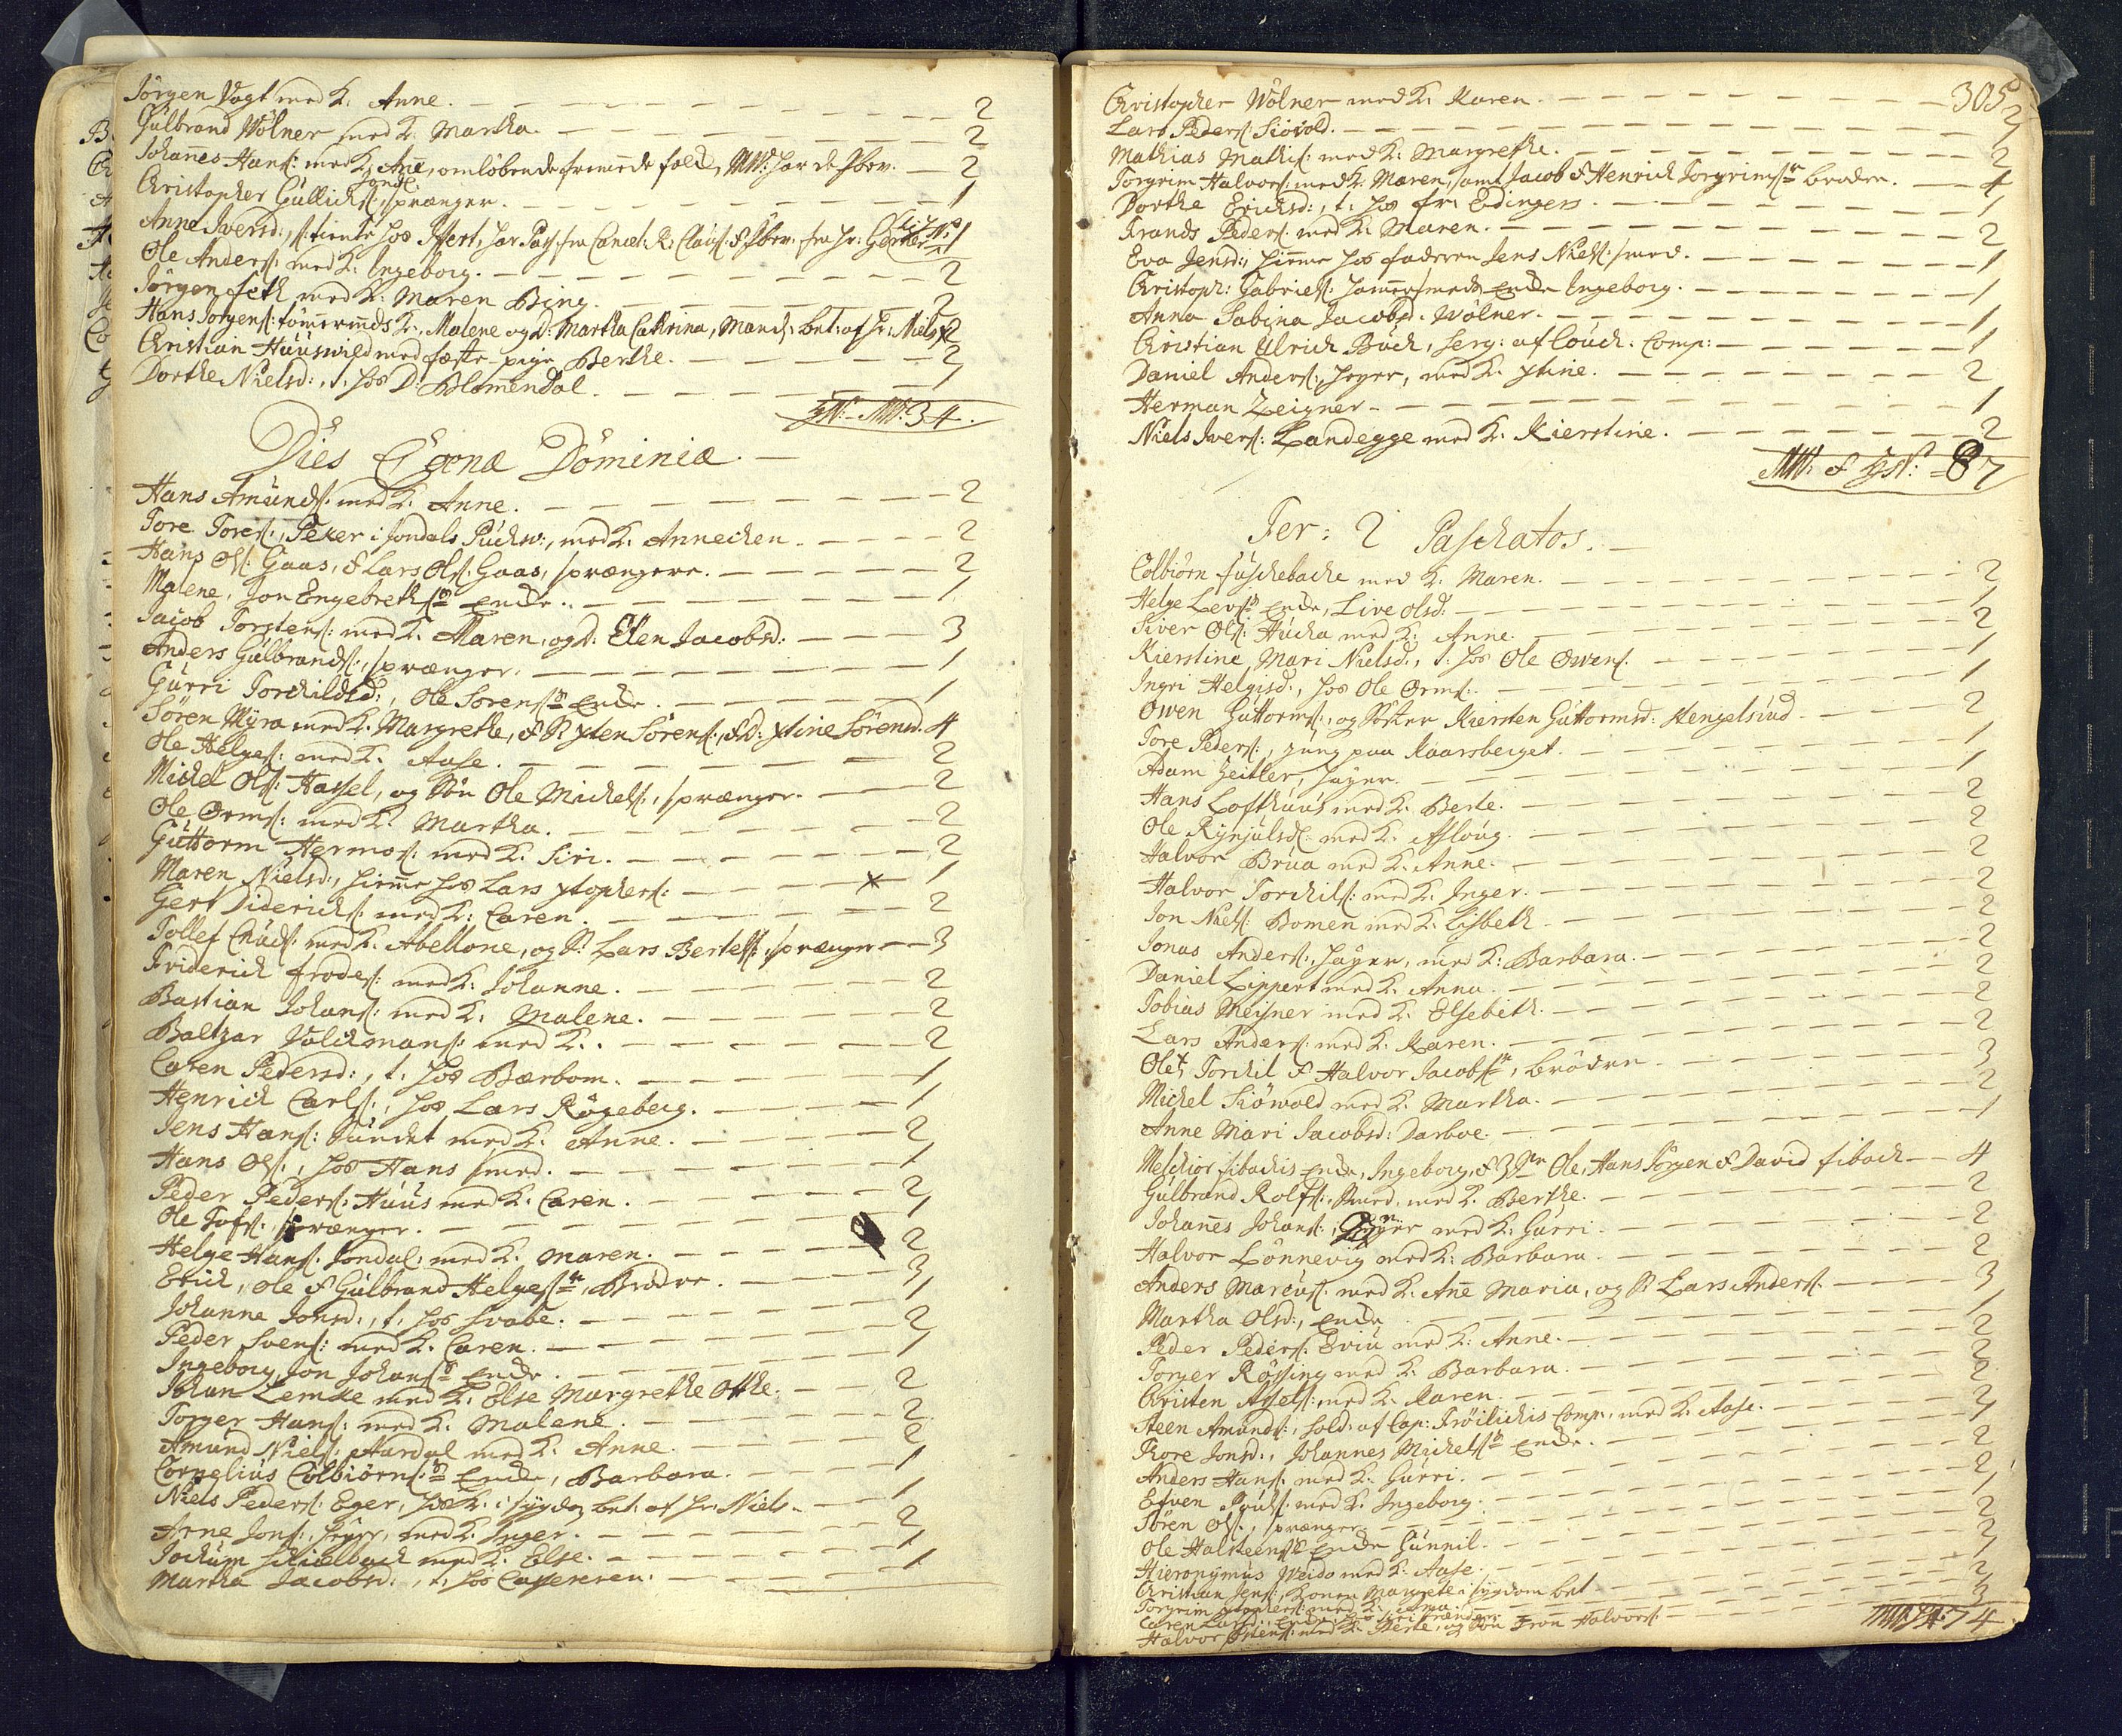 Jörgen Vogt med K. Anne. 2
Gülbrand Wölner med K. Martha. 2
Johanes Hans: med K. Ane, omløbende fremede folck, 2
Christopher Güllichs: sprænger. 1
Anne Iversd:, tiente hos 1
Ole Anders: med K. Ingeborg. 2
Jörgen feth med K. Maren Bing. 2
Hans Jörgens: K., Malene og D. Martha Cathrina, bet: af Hr: Niels 2
Christian Hüüswild med fæste pige Berthe. 2
Dorthe Nielsd:, t. hos D. Blomendal. 1
34.
Dies Coenæ Dominicæ
Hans Amünds: med K. Anne. 2
Tore Tores:, Peker i Jondals Püchw:, med K. Annechen. 2
Hans Ols: Gaas, & Lars Ols: Gaas, sprængere. 2
Malene, Jon Engebrethsns Encke. 1
Jacob Torstens: med K. Maren, og D. Elen Jacobsd: 3
Anders Gülbrands:, sprænger. 1
Gürri Torchildsd:, Ole Sorensns Encke. 1
Sören Myra med K. Margrethe, & S. xsten Sörens:, & D: xstine Sörensd. 4
Ole Helges: med K. Aase. 2
Michel Ols: Hassel, og Sön Ole Michels:, sprænger. 2
Ole Orms: med K. Martha. 2
Güttorm Hermos: med K. Siri. 2
Maren Nielsd:, hieme hos Lars xstophers: x 1
Gert Diderichs: med K: Caren. 2
Tollef Cnüds: med K. Abellone, og S: Lars Bertels:, sprænger 3
Friderich frodes: med K: Johanne. 2
Bastian Johans: med K. Malene. 2
Baltzar Volckmans: med K. 2
Caren Pedersd:, t. hos Bærbom. 1
Henrich Carls:, hos Lars Rögeberg. 1
Jens Hans: Sundet med K. Anne. 2
Hans Ols:, hos Hans smed. 1
Peder Peders: Hüüs med K. Caren. 2
Ole Tofs:, sprænger. 1
Helge Hans: Jondal: med K. maren. 2
Erich, Ole & Gülbrand Helgesnr, Brødre. 3
Johanne Jonsd:, t. hos Svabe. 1
Peder Svens: med K. Caren. 2
Ingeborg, Jon Johansns Encke. 1
Johan Lemke med K. Else Margrethe Otthe. 2
Torger Hans: med K. Malene. 2
Amünd Niels: Aardal med K. Anne. 2
Cornelius Colbiörns:ns Encke, Barbara. 1
Niels Peders: Eger, hos K. i sygdom bet: af Hr: Niels 1
Arne Jons:, Jeger, med K. Inger. 2
Jochüm Schielbach med K. Else. 1
Martha Jacobsd:, t. hos Cassereren. 1
305
Christopher Wölner med K. Karen. 2
Lars Peders: Siövold. 1
Mathias Mathis: med K. Margrethe. 2
Torgrim Halvors: med K. Maren, samt Jacob & Henrich Torgrimsnr brødre. 4
Dorthe Erichsd:, t: hos fr: Edingers 1
Frands Peders: med K. Maren. 2
Eva Jensd:, hieme hos faderen Jens Niels: smed. 1
Christoph: Gabriels: hamersmeds Encke Ingeborg. 1
Anna Sabina Jacobsd. Wölner. 1
Christian Ulrich Büch, Serg: af Couch. Comp: 1
Daniel Anders:, Jeger, med K. xstine. 2
Herman Zeigner 1
Niels Ivers: Landegge med K. Kierstine. 2
87
Fer: 2 Paschatos.
Colbiörn Füschebache med K. Maren. 2
Helge Levsns Encke, Live Olsd: 1
Siver Ols: Hücka med K. Anne. 2
Kierstine Mari Nielsd:, t. hos Ole Owens. 1
Ingri Helgisd:, hos Ole Orms: 1
Owen Güttorms:, og Söster Kiersten Güttormsd: Hengelsrud 2
Tore Peders:, gung paa Kaarsberget. 1
Adam Zeitler, Jäger. 1
Hans Lofthüüs med K. Berte. 2
Ole Rynjuls: med K. Asloug. 2
Halvor Brüa med K. Anne. 2
Halvor Torchils: med K. Inger. 2
Jon Niels: Bomen med K. Lisbeth 2
Jonas Anders:, Jäger, med K: Barbara. 2
Daniel Lippert med K. Anna. 2
Tobias Meisner med K. Elsebeth. 2
Lars Anders: med K. Karen. 2
Ole, Torchil & Halvor Jacobsnr, brödre 3
Michel Siöwold med K. Martha. 2
Anne Mari Jacobsd: Darboe. 1
Melchior fibachis Encke, Ingeborg, & 3 Snr Ole, Hans Jörgen & David fibach 4
Gülbrand Rolfs:, Smed, med K. Berthe. 2
Johanes Johans:, med K: Gürri 2
Halvor Lönnevig med K: Barbara 2
Anders Marcüs: med K. Ane Maria, og S: Lars Anders: 3
Martha Olsd:, Encke 1
Peder Peders: Eviü med K: Anne. 2
Torger Rössing med K. Barbara. 2
Christen Assels: med K. Karen. 2
Steen Amunds:, sold: af Cap: Fröilichis Comp:, med K. Aase. 2
Thore Jonsd:, Johannes Michelsns Encke. 1
Anders Hans: med K. Gürri. 2
Efven Poüls: med K. Ingeborg. 2
Sören Ols:, sprænger. 1
Ole Halsteensns Encke Günnil. 1
Hieronymus Weido med K. Aase. 2
Christian Jens:, Konen Margrete i sygdom bet 1
Torgrim xstophers: med K. Anna. 2
Caren Larsd:, Encke, hos
Halvor Stens: med K. Berte, og Sön Tron Halvors: 3
74.